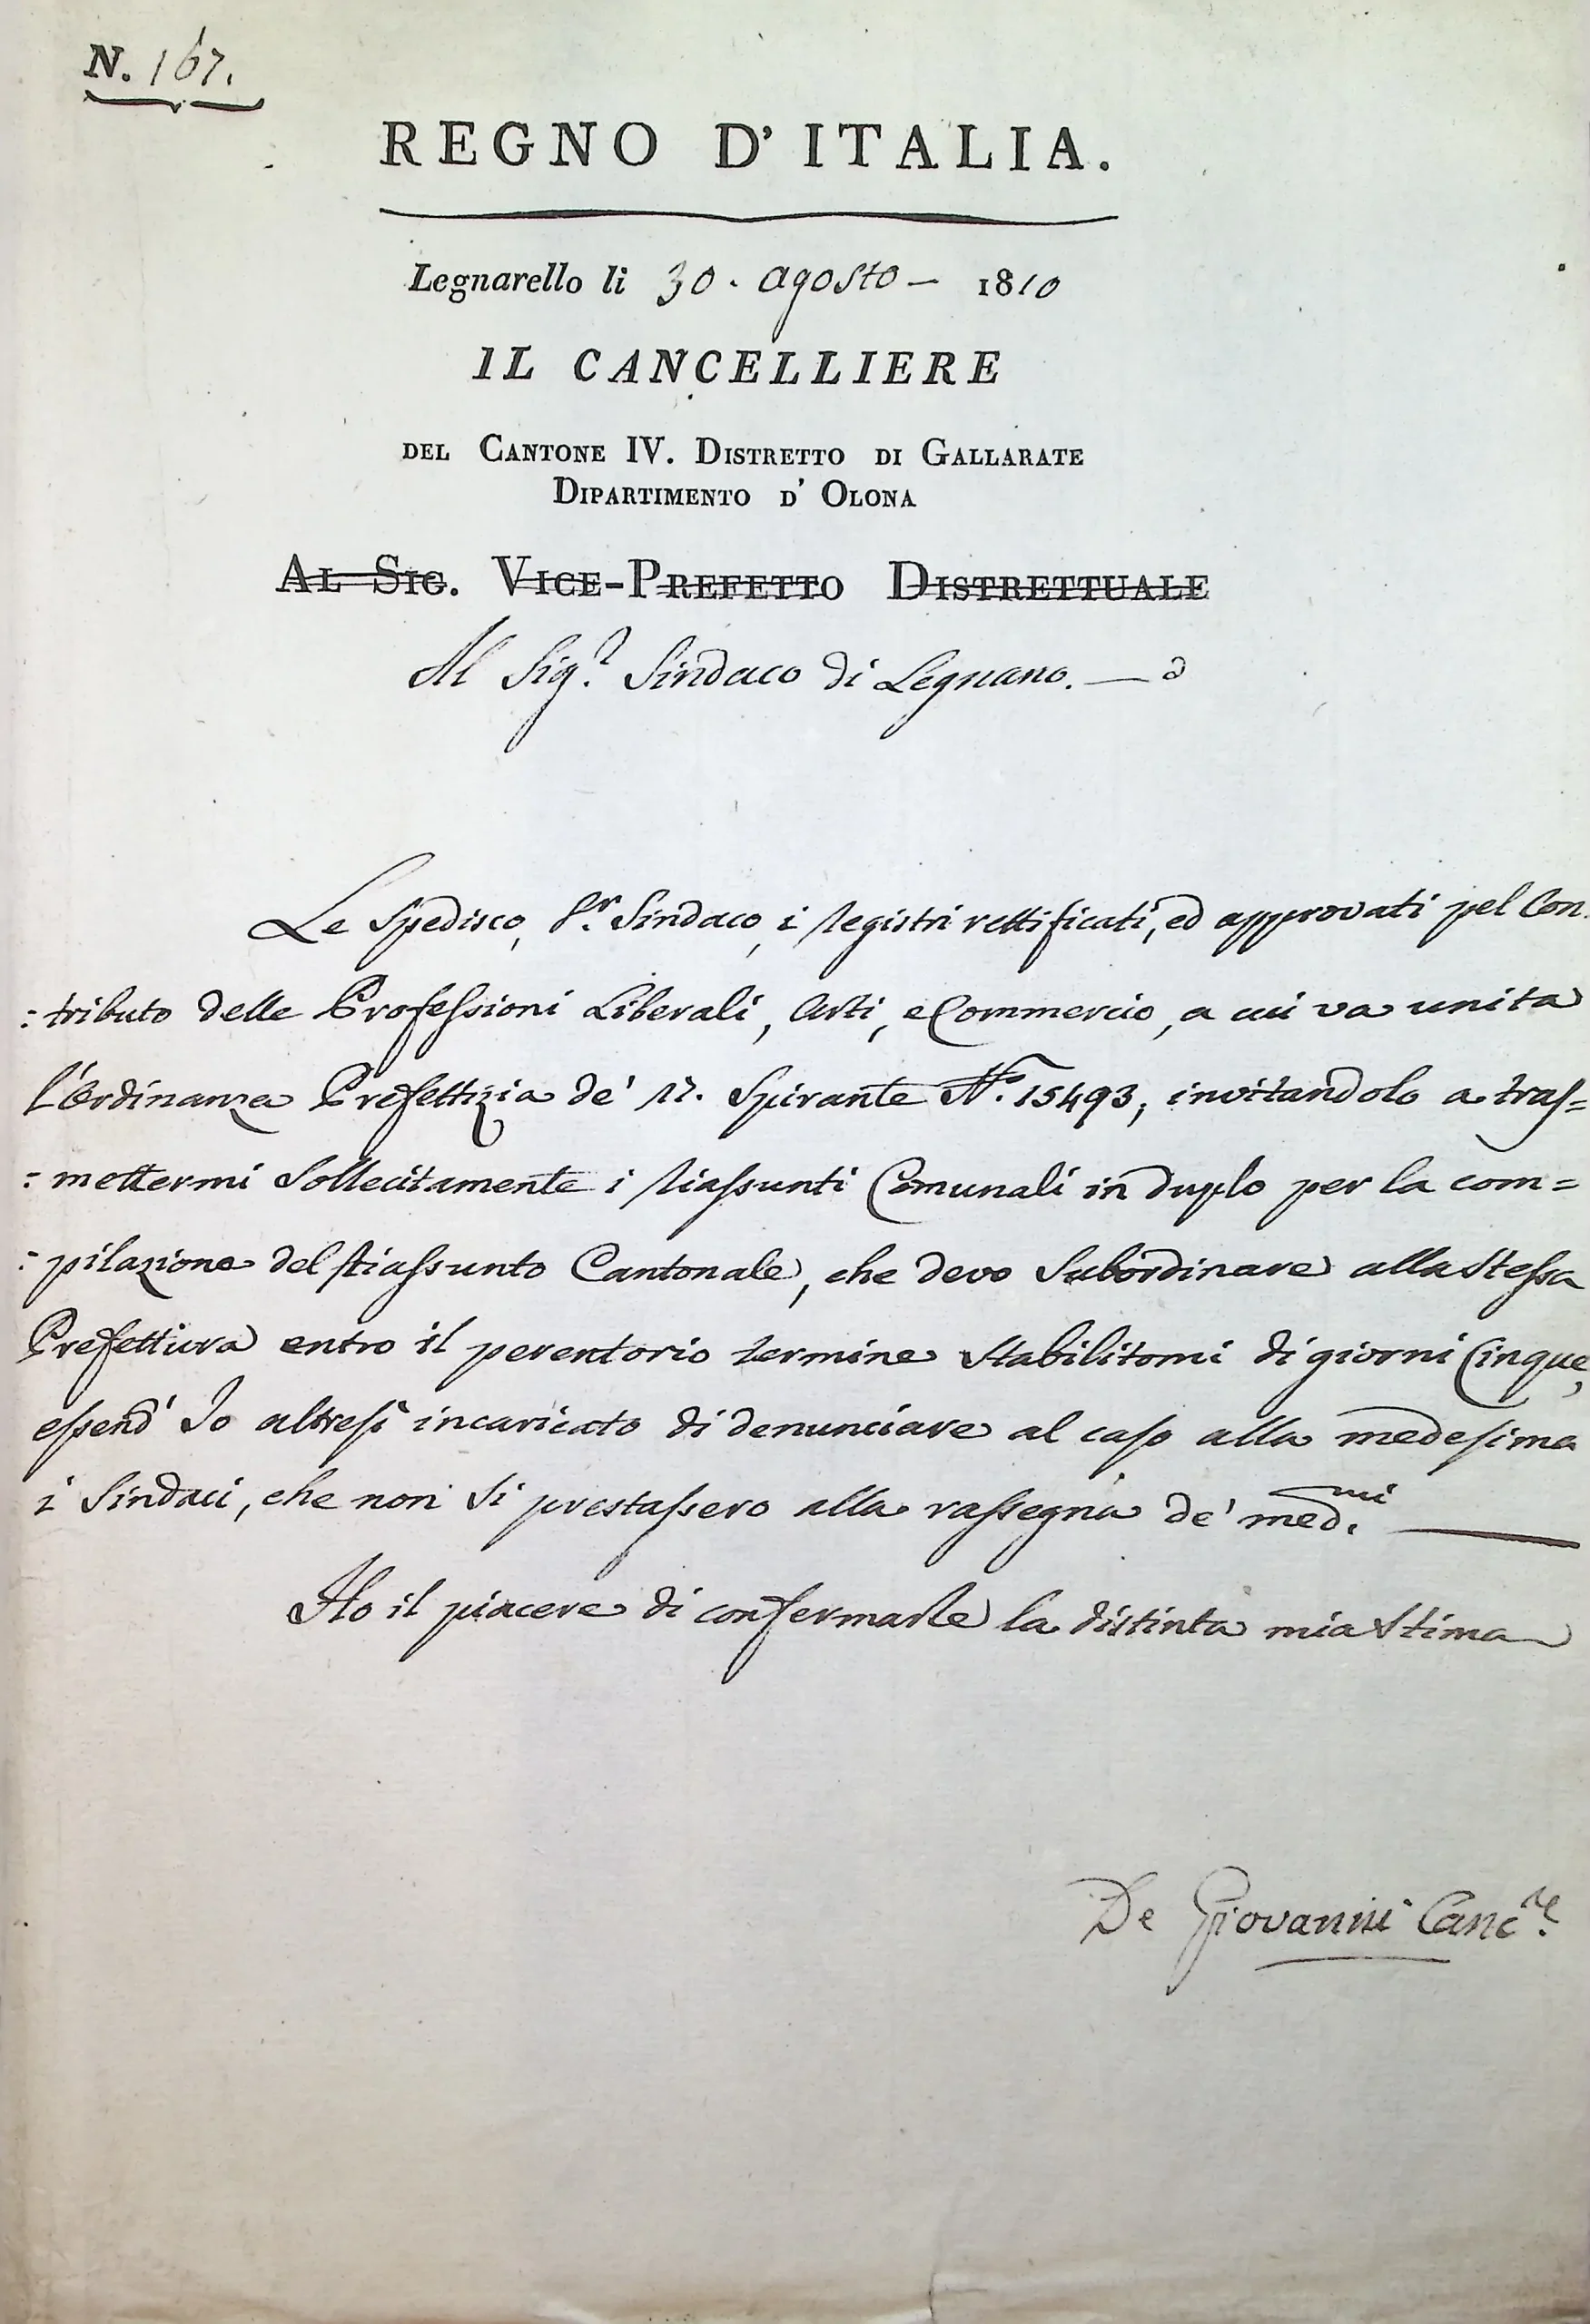 N. 167.
REGNO D' ITALIA.
Legnarello li 30. Agosto — 1810
IL CANCELLIERE
DEL CANTONE IV. DISTRETTO DI GALLARATE
DIPARTIMENTO D' OLONA
AL SIG. VICE-PREFETTO DISTRETTUALE
Al Sig.r Sindaco di Legnano. —
Le Spedisco, S.r Sindaco, i Registri rettificati, ed approvati pel Con:
:tributo delle Professioni Liberali, Arti, e Commercio, a cui va unita
l'Ordinanza Prefettizia de' Spirante N.o 15493, invitandolo a tras=
:mettermi Sollecitamente i Riassunti Comunali in duplo per la com=
:pilazione del Riassunto Cantonale, che devo Subordinare alla Stessa
Prefettura entro il perentorio termine Stabilitomi di giorni Cinque,
essend' Io altresì incaricato di denunciare al caso alla medesima
i Sindaci, che non si prestassero alla rassegna de' med.mi
Ho il piacere di confermarle la distinta mia Stima
De Giovanni Canc.re